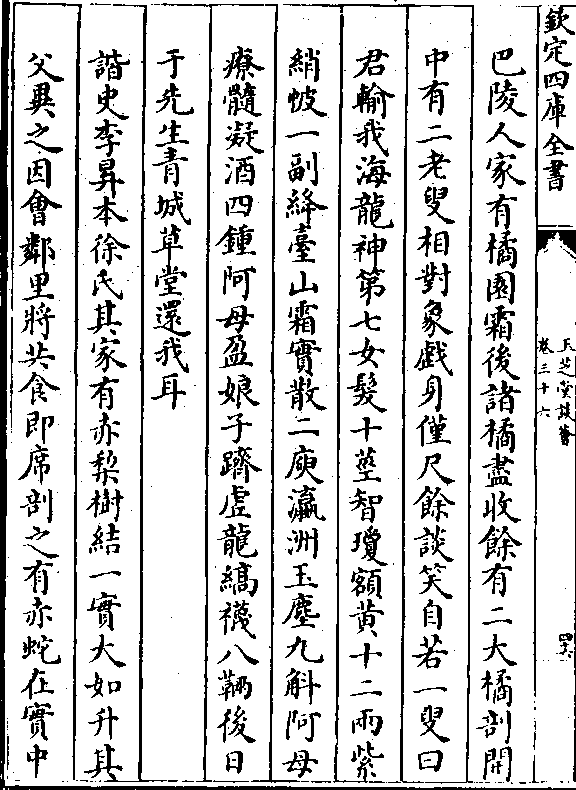 欽定四庫全書
天芝堂談薈
卷三十六
四六
巴陵人家有橘園霜後諸橘盡收餘有二大橘剖開
中有二老叟相對象戲身僅尺餘談笑自若一叟曰
君輸我海龍神第七女髮十莖智瓊額黃十二兩紫
綃帔一副絳臺山霜實散二庾瀛洲玉塵九斛阿母
療髓凝酒四鍾阿母盈娘子躋虛龍縞襪八緉後日
于先生青城草堂還我耳
諧史李昇本徐氏其家有赤梨樹結一實大如升其
父異之因會鄰里將共食即席剖之有赤蛇在實中